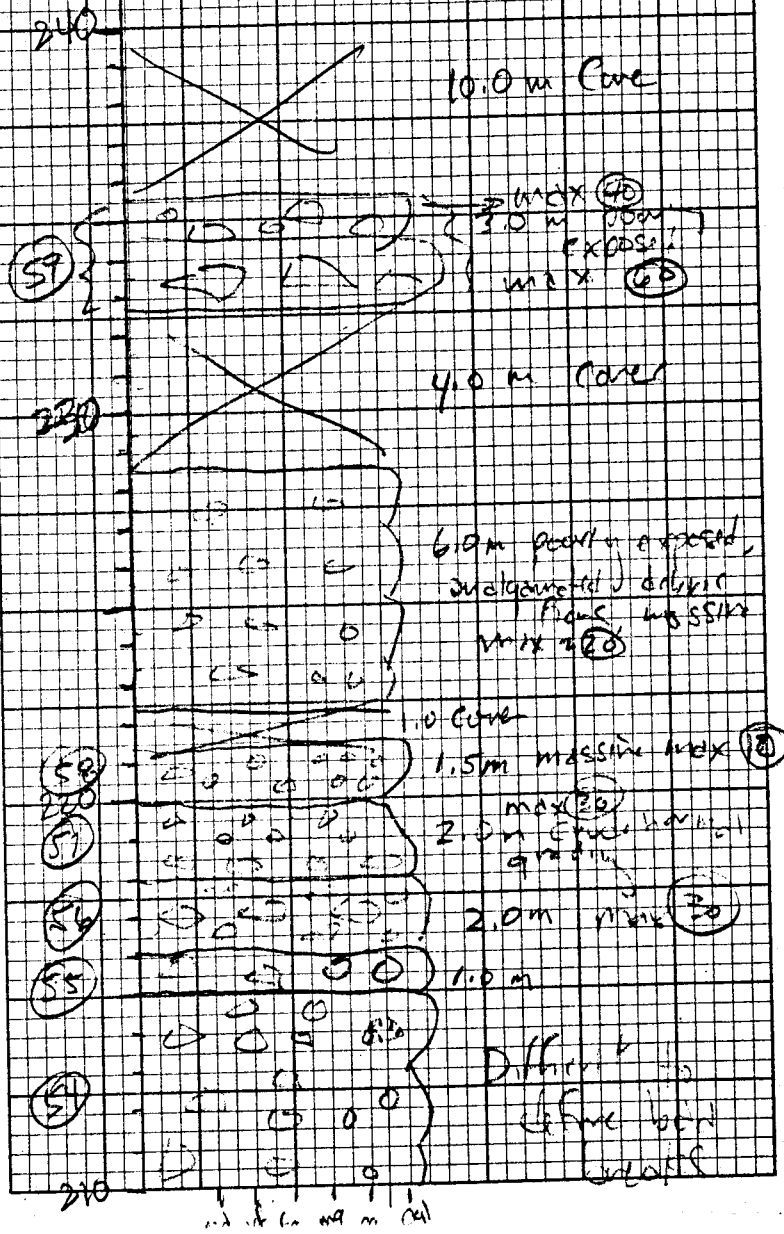 240
10.0 m Cove
max 40
3.0 m poorly
exposed
59
max 60
4.0 m Cover
230
6.0 m poorly exposed,
amalgamated debris
flows massive
max 20
1.0 Cover
58
1.5m massive max 10
220
max 20
57
2.0 m
grading
56
2.0m max 30
55
1.0 m
Difficult to
54
define bed
210